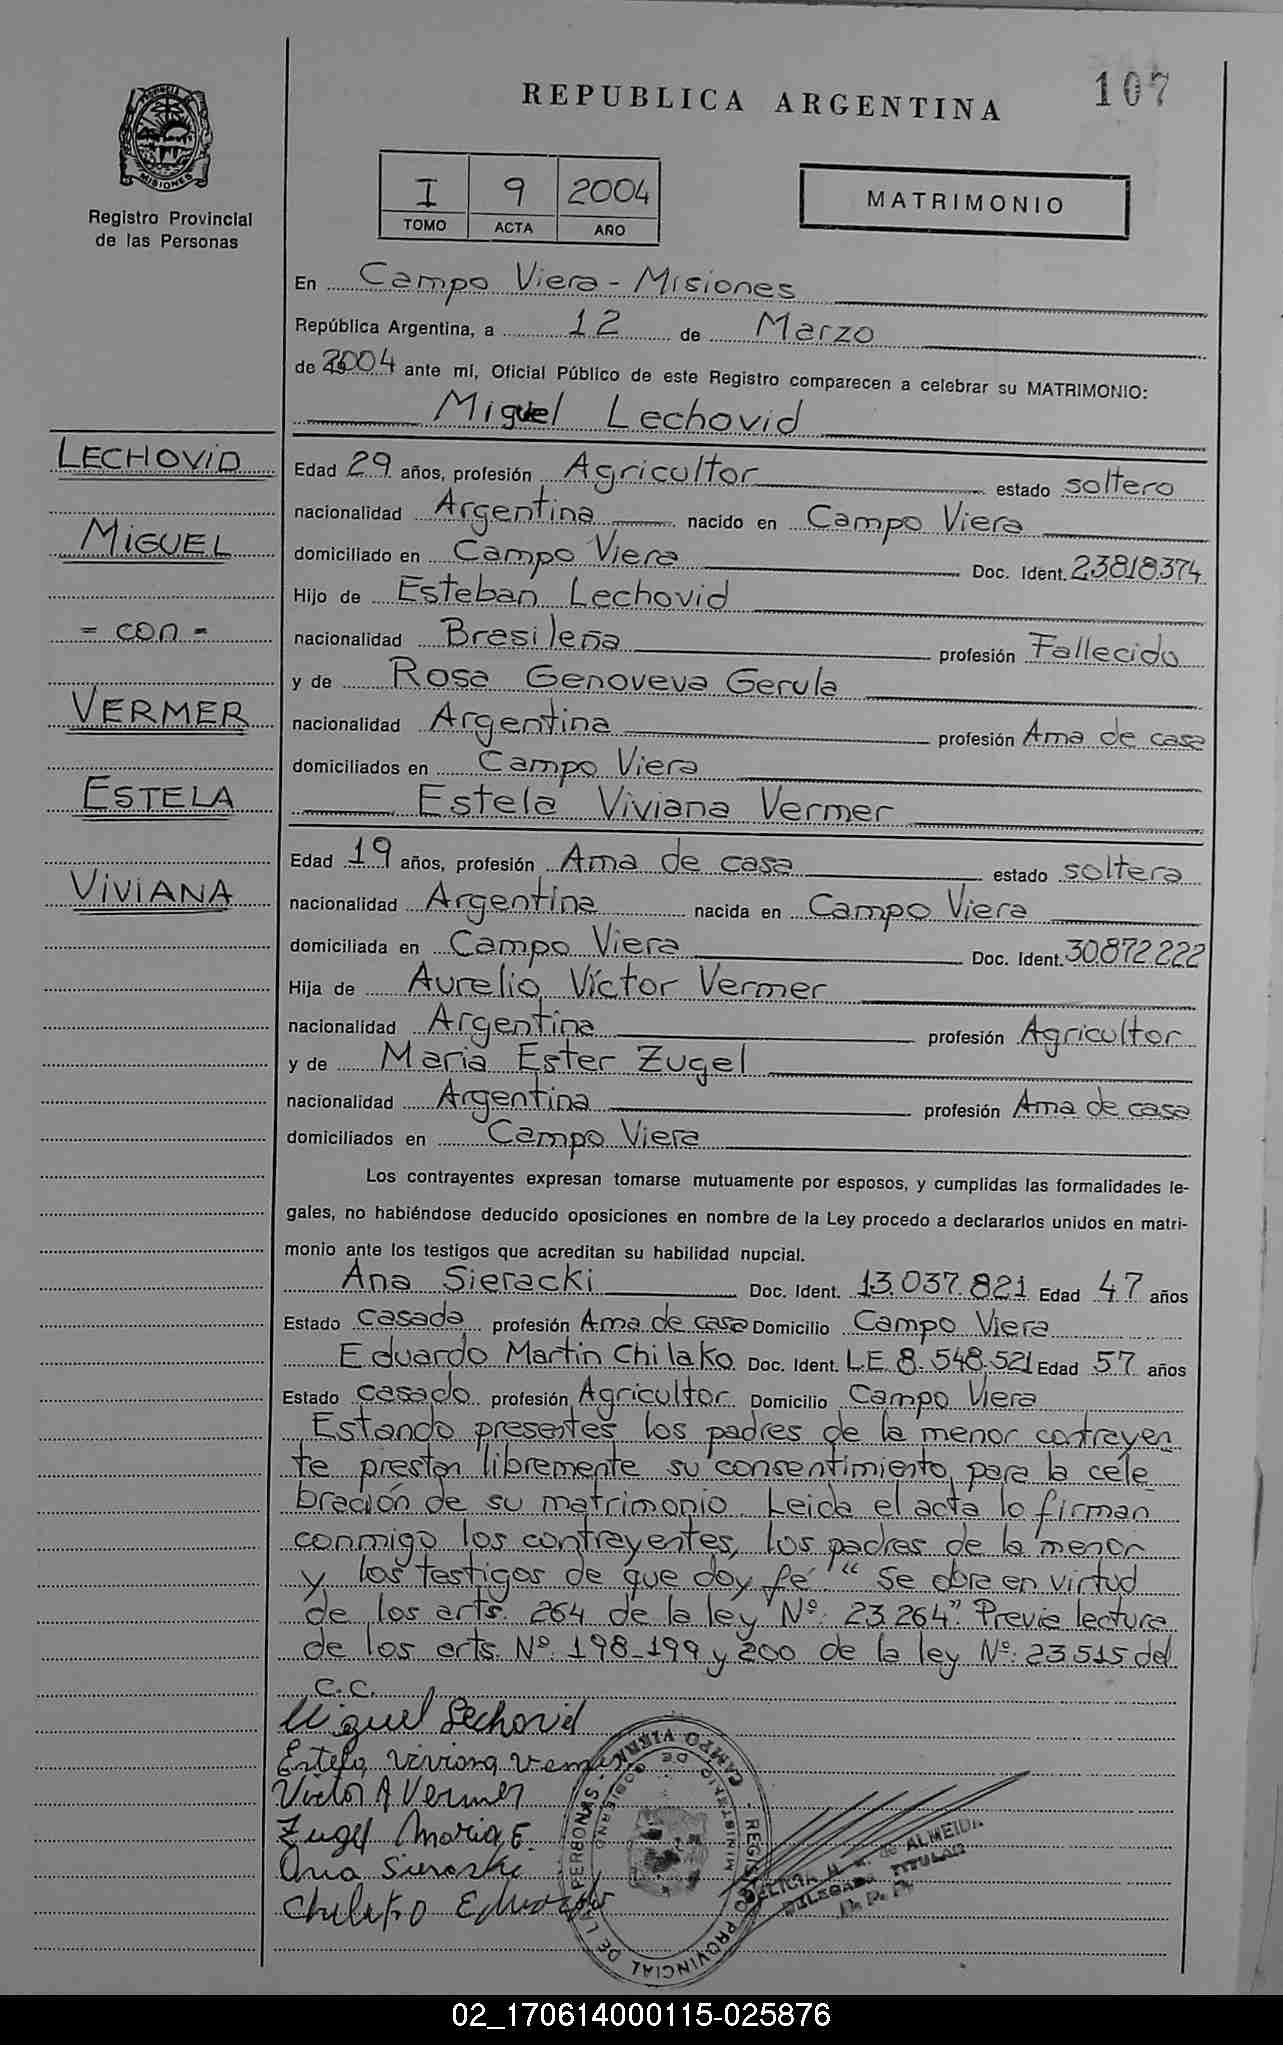 107
REPUBLICA ARGENTINA
PROVINCIA DE MISIONES
Registro Provincial
de las Personas
I 9 2004
TOMO ACTA AÑO
MATRIMONIO
En Campo Viera - Misiones
República Argentina, a 12 de Marzo
de 2004 ante mí, Oficial Público de este Registro comparecen a celebrar su MATRIMONIO:
Miguel Lechovid
LECHOVID
Edad 29 años, profesión Agricultor estado soltero
nacionalidad Argentina nacido en Campo Viera
MIGUEL
domiciliado en Campo Viera Doc. Ident. 23818374
Hijo de Esteban Lechovid
= con =
nacionalidad Brasileña profesión Fallecido
y de Rosa Genoveva Gerula
VERMER
nacionalidad Argentina profesión Ama de casa
domiciliados en Campo Viera
ESTELA
Estela Viviana Vermer
Edad 19 años, profesión Ama de casa estado soltera
VIVIANA
nacionalidad Argentina nacida en Campo Viera
domiciliada en Campo Viera Doc. Ident. 30.872.222
Hija de Aurelio Víctor Vermer
nacionalidad Argentina profesión Agricultor
y de Maria Ester Zugel
nacionalidad Argentina profesión Ama de casa
domiciliados en Campo Viera
Los contrayentes expresan tomarse mutuamente por esposos, y cumplidas las formalidades le-
gales, no habiéndose deducido oposiciones en nombre de la Ley procedo a declararlos unidos en matri-
monio ante los testigos que acreditan su habilidad nupcial.
Ana Sieracki Doc. Ident. 13.037.821 Edad 47 años
Estado casada profesión Ama de casa Domicilio Campo Viera
Eduardo Martin Chilako Doc. Ident. L.E 8.548.521 Edad 57 años
Estado casado profesión Agricultor Domicilio Campo Viera
Estando presentes los padres de la menor contrayen
te prestan libremente su consentimiento para la cele
bración de su matrimonio Leida el acta lo firman
conmigo los contrayentes, los padres de la menor
y los testigos de que doy fé " Se obra en virtud
de los arts. 264 de la ley Nº: 23.264". Previa lectura
de los arts. Nº: 198-199 y 200 de la ley Nº: 23.515 del
C.C.
Miguel Lechovid
Estela Viviana Vermer
Victor A Vermer
Zugel Maria E.
Ana Sieracki
Chilako Eduardo
REGISTRO PROVINCIAL DE LAS PERSONAS - CAMPO VIERA -
MINISTERIO DE GOBIERNO
DE ALMEIDA
DELEGADA TITULAR
02_170614000115-025876